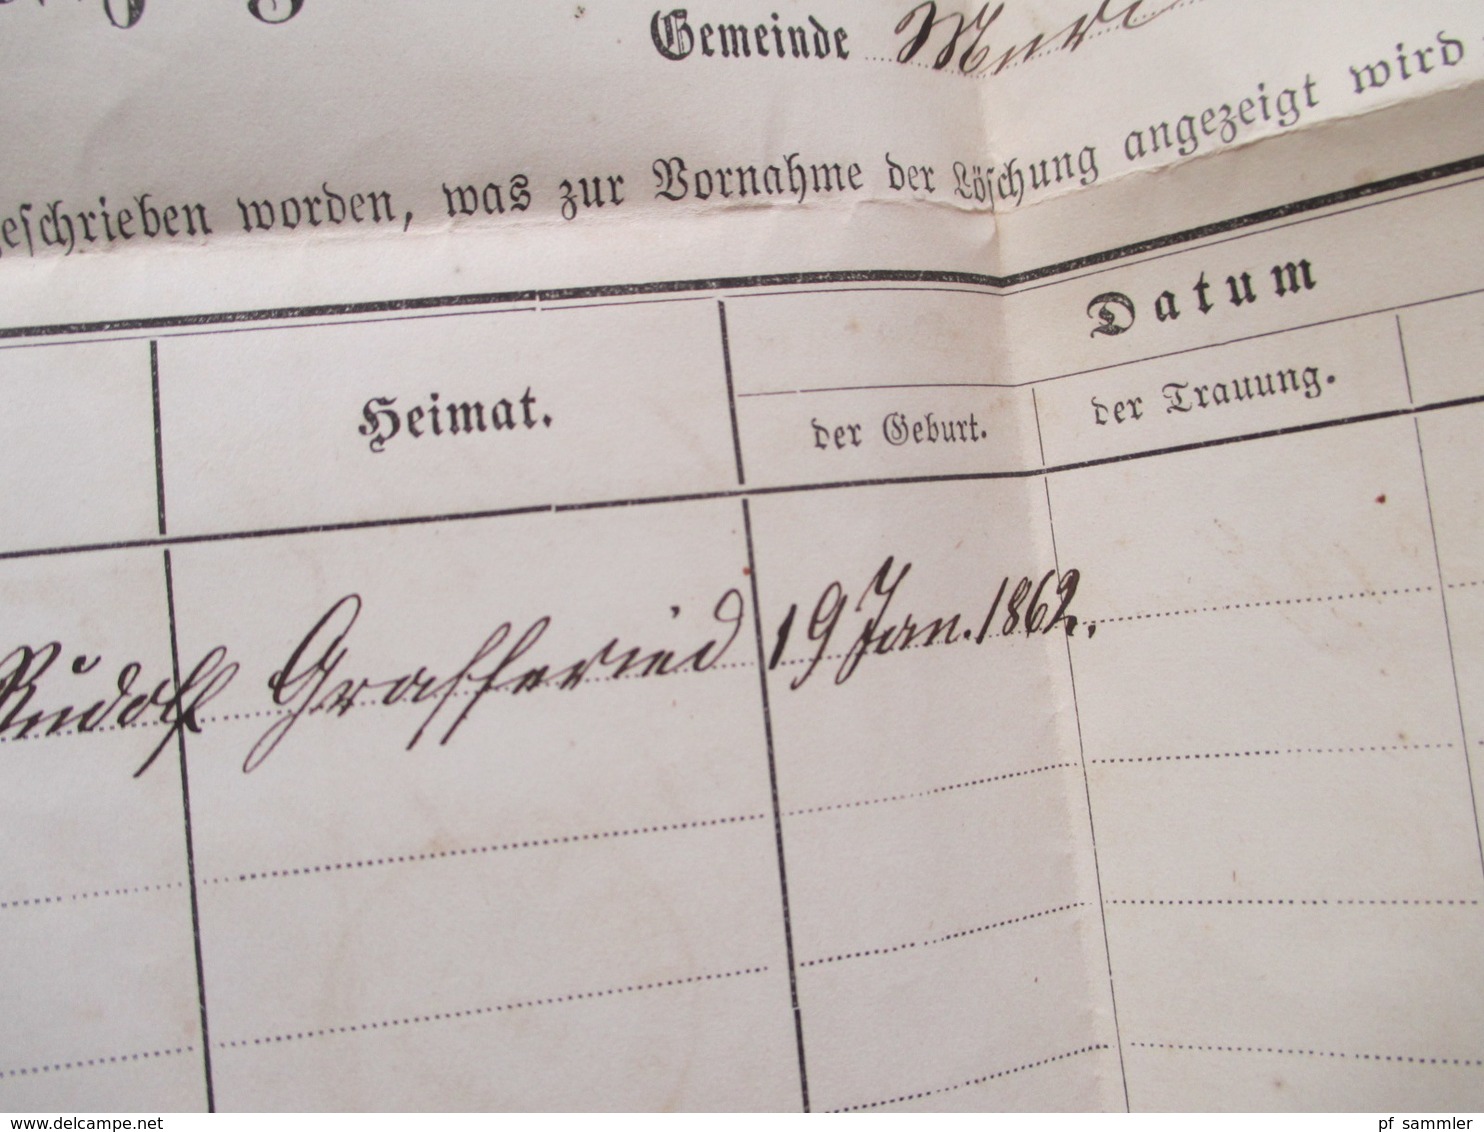 Gemeinde
geschrieben worden, was zur Vornahme der Löschung angezeigt wird
Datum
Heimat.
der Geburt. der Trauung.
Rudolf Grafferied 19 Jan. 1862.
www.delcampe.net
pf_sammler